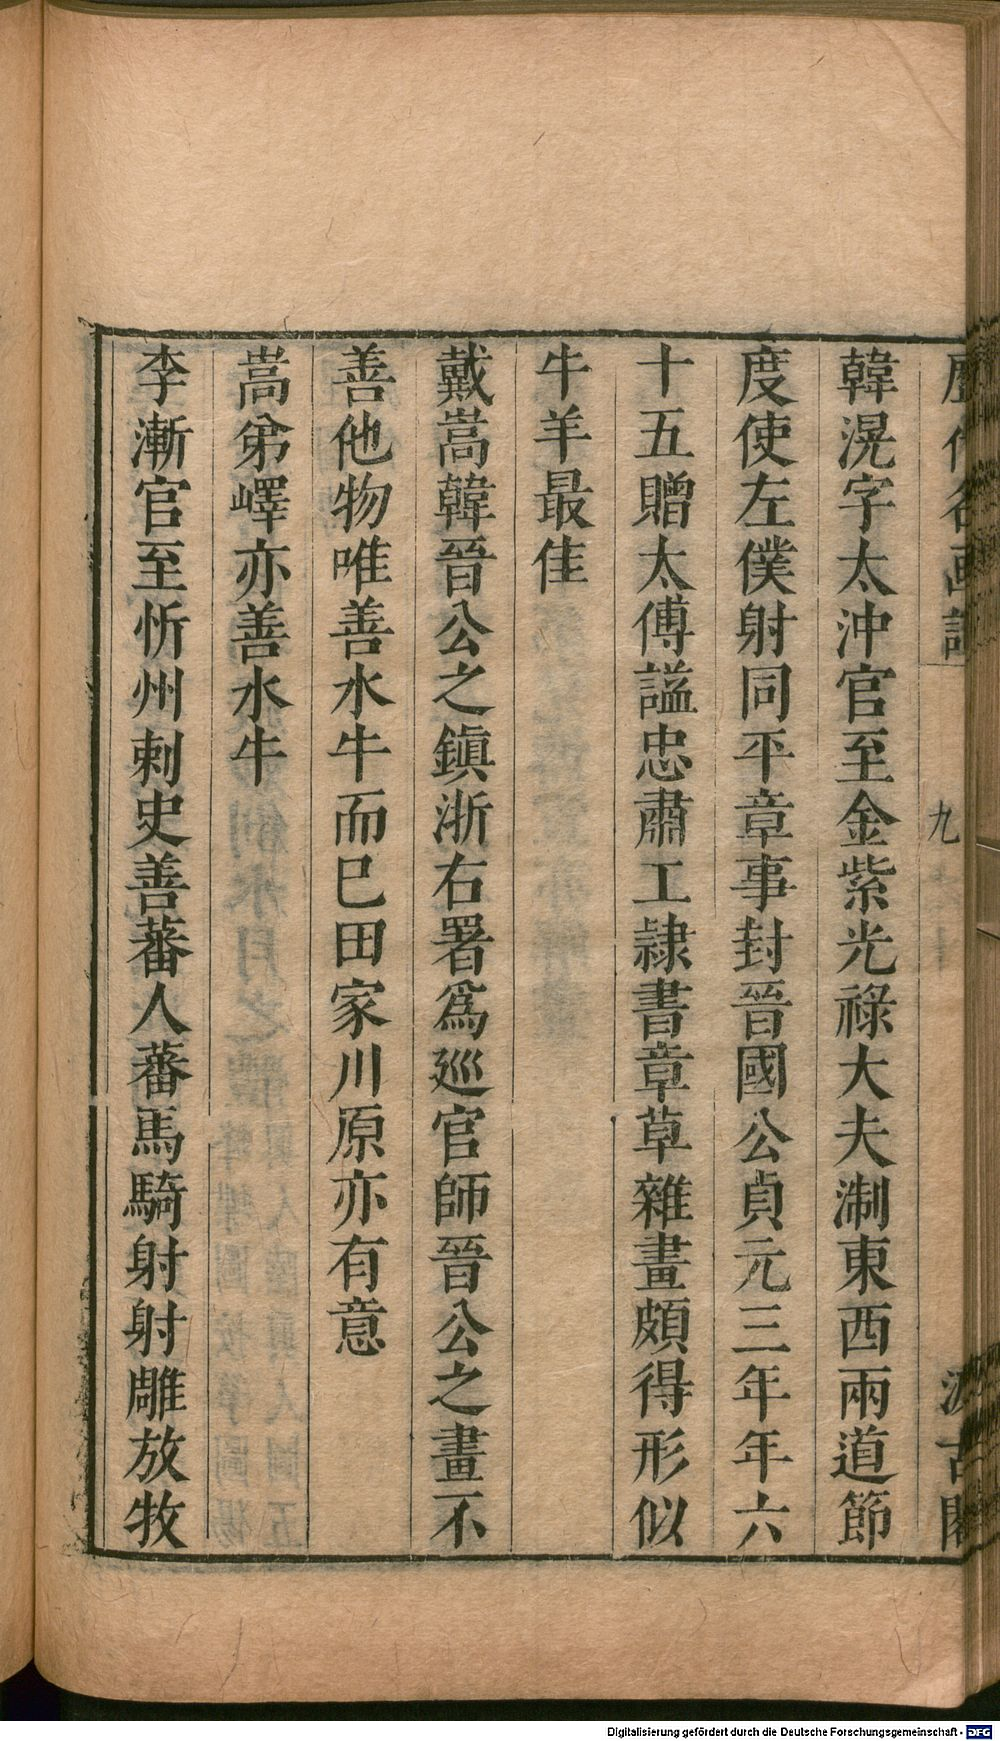 九
韓滉字太沖官至金紫光祿大夫淛東西兩道節
度使左僕射同平章事封晉國公貞元三年年六
十五贈太傅謚忠肅工隷書章草雜畫頗得形似
牛羊最佳
戴嵩韓晉公之鎭浙右署爲廵官師晉公之畫不
善他物唯善水牛而巳田家川原亦有意
嵩弟嶧亦善水牛
李漸官至忻州刺史善蕃人蕃馬騎射射雕放牧
Digitalisierung gefördert durch die Deutsche Forschungsgemeinschaft - DFG